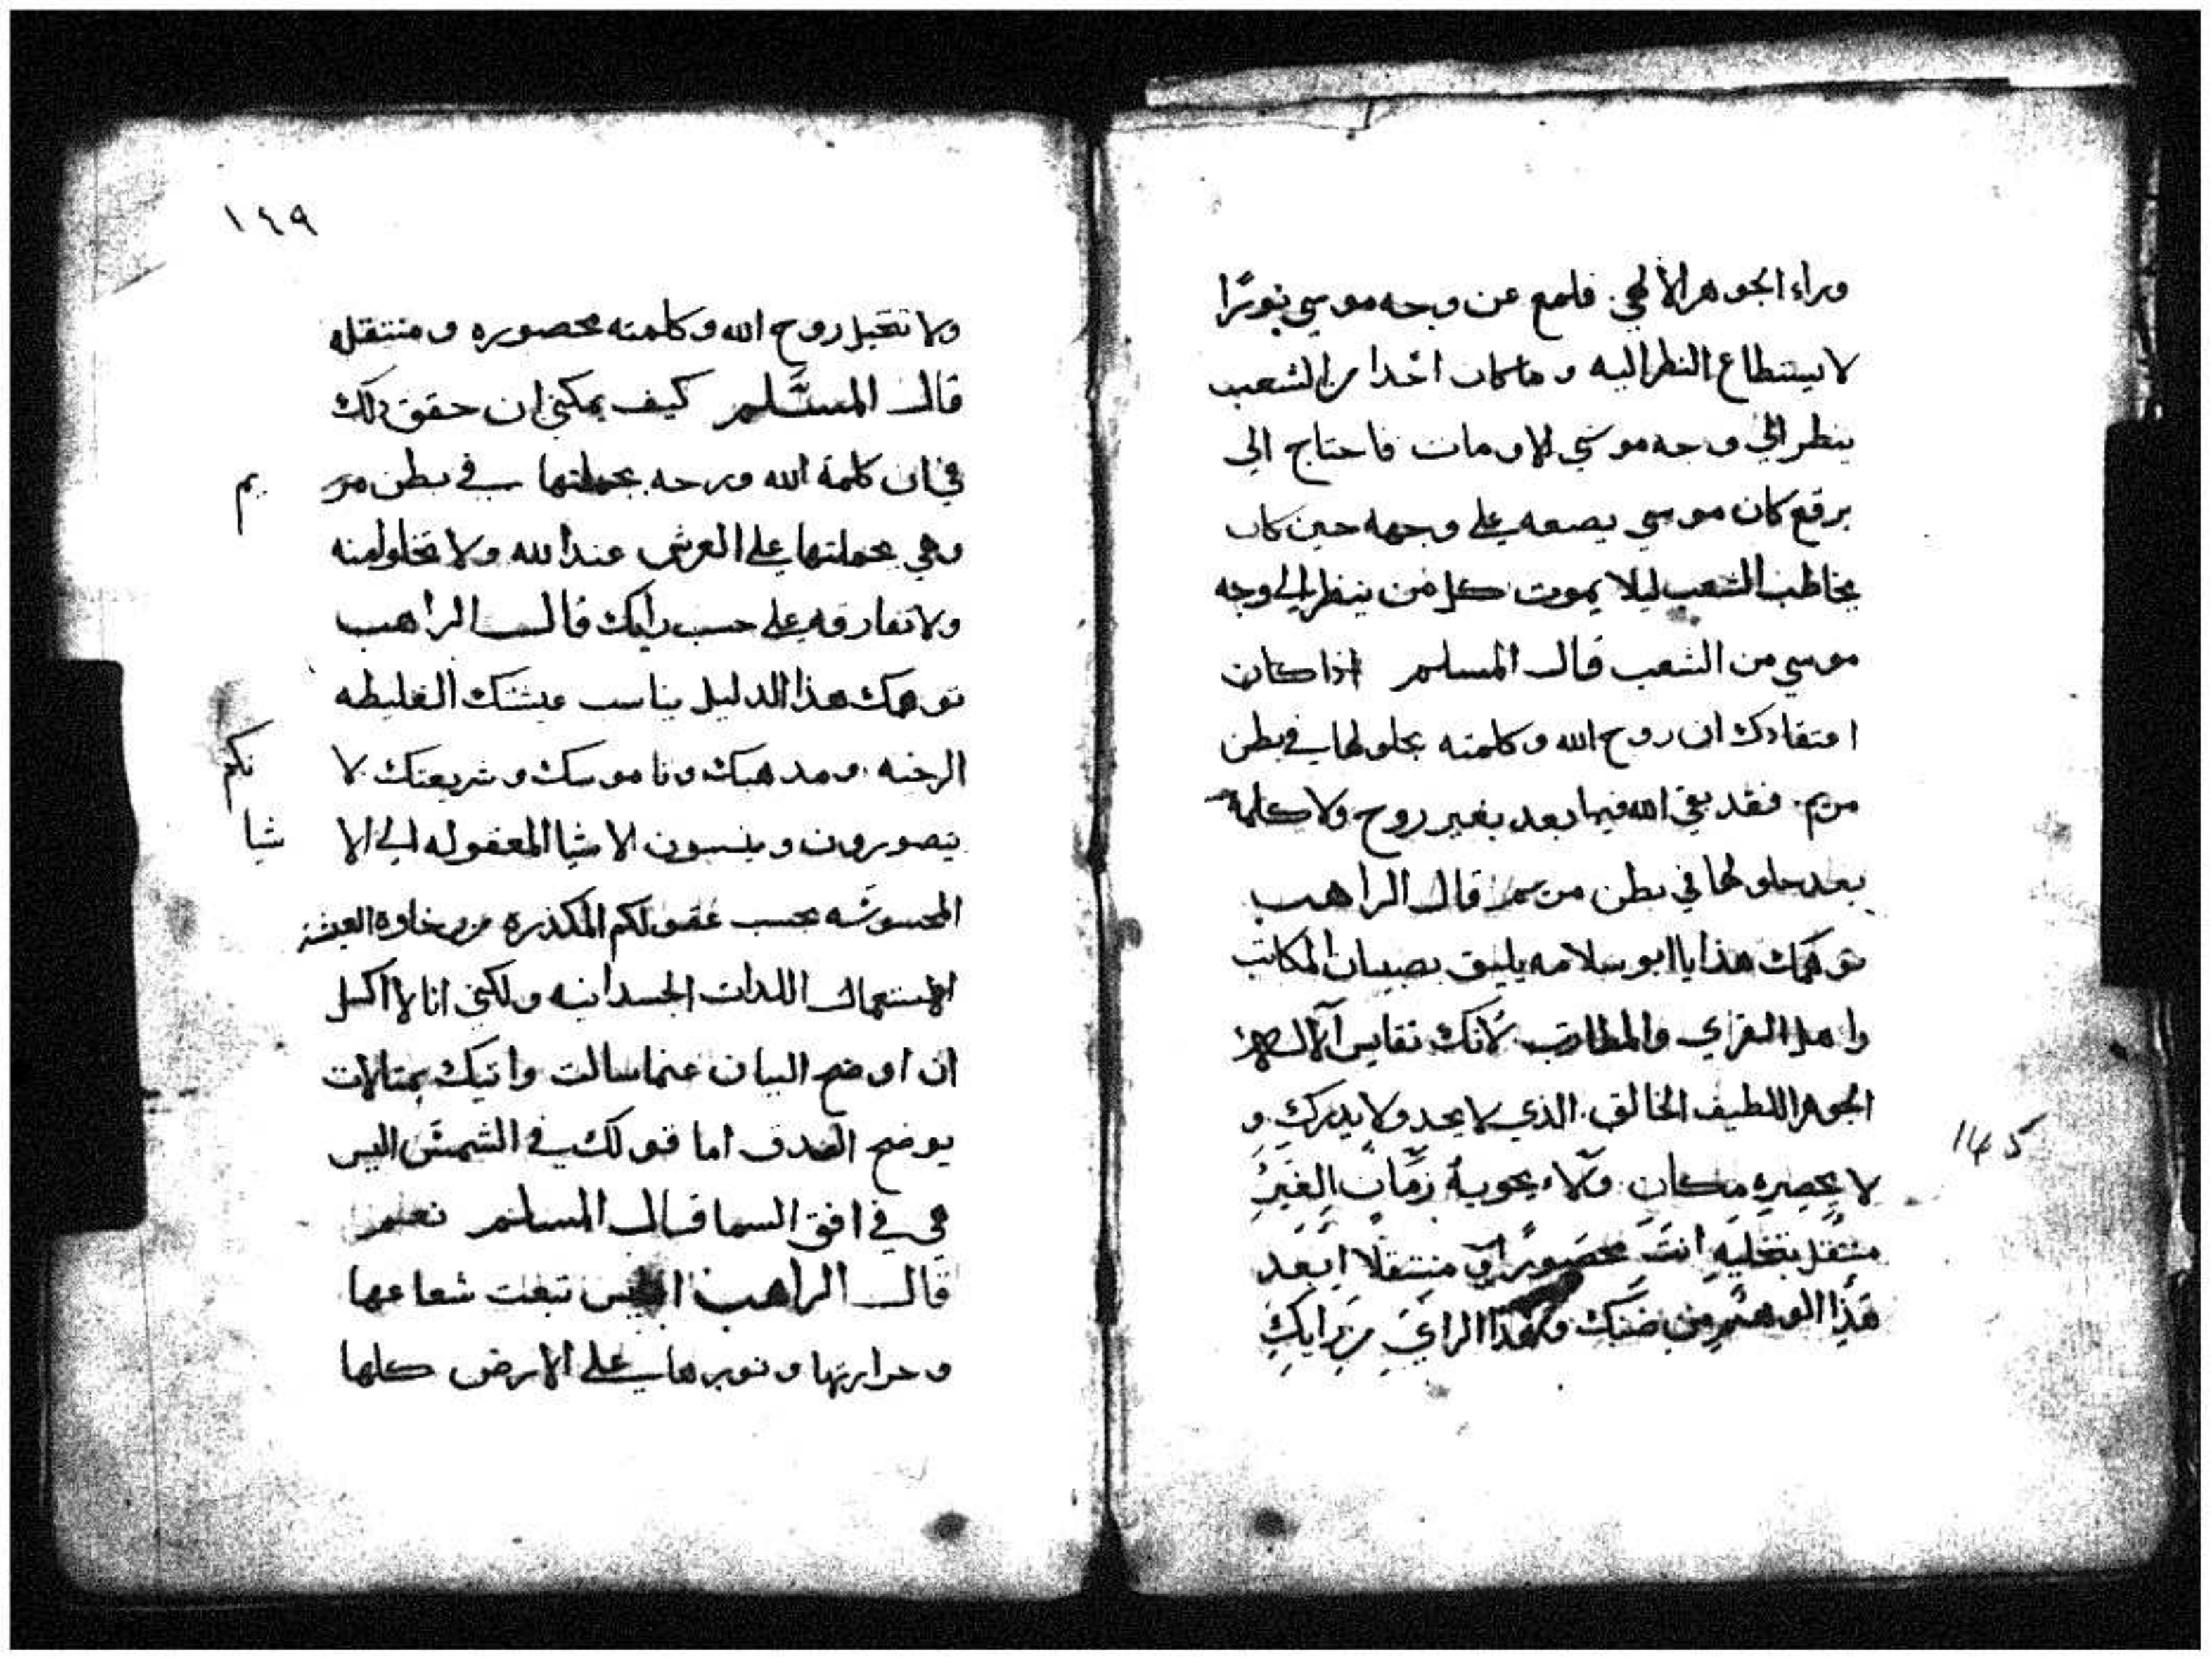 وراء الجوهر الالهي. فلمع عن وجه موسي نورًا
لا يستطاع النظر اليه وما كان احدا من الشعب
ينظر الي وجه موسي الا ومات فاحتاج الي
برقع كان موسي يضعه علي وجهه حين كان
يخاطب الشعب ليلا يموت كل من ينظر الي وجه
موسي من الشعب قال المسلم اذا كان
اعتقادك ان روح الله وكلمته بحلولها في بطن
مريم. فقد بقي الله فيما بعد بغير روح ولا كلمة
بعد حلولها في بطن مريم قال الراهب
توهمك هذا يا ابو سلامه يليق بصبيان المكاتب
واهل القري لانك تقايس
الجوهر اللطيف الخالق. الذي لا يحد ولا يدرك. و
لا يحصره مكان. ولا يحويه زمان الغير
منتقل بتخليه انت محصورًا او منتقلا ابعد
هذا الوهم من ضنك وهذا الراي من رايك
145
١٤٩
ولا تتخيل روح الله وكلمته محصوره ومنتقله
قال المسلم كيف يمكني ان حقق ذلك
في ان كلمة الله وروحه بجملتها في بطن مر
يم
وهي بجملتها علي العرش عند الله ولا تخلوا منه
ولا تفارقه علي حسب رايك قال الراهب
توهمك هذا الدليل يناسب الغليظه
ومدهبك وناموسك وشريعتك لا
نكم
يتصورون وينسبون الاشيا المعقوله الي الا
شيا
المحسوسه بحسب عقولكم المكدره من رخاوة
اللدات الجسدانيه ولكني انا لا اكسل
ان اوضح البيان عنما سالت واتيك بمتالات
يوضح الصدق اما قولك في الشمس اليس
هي في افق السما قال المسلم نعم
قال الراهب اليس تبعت شعاعها
وحرارتها ونورها علي الارض كلها